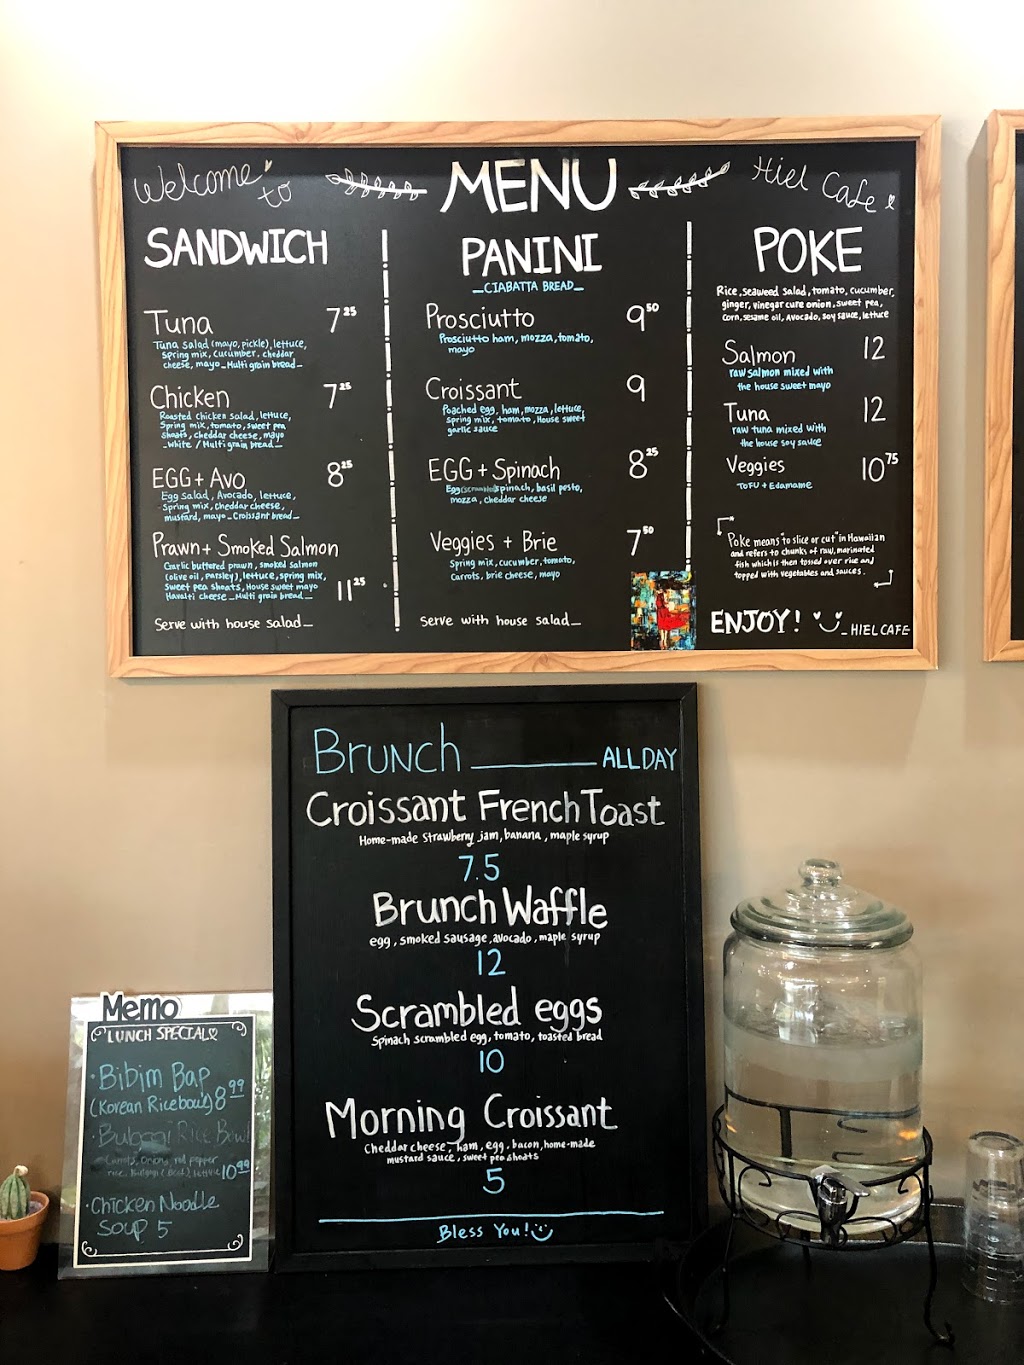 Welcome to
MENU
Hiel Cafe
SANDWICH
Tuna 7.25
Tuna salad (mayo, pickle), lettuce,
spring mix, cucumber. cheddar
cheese, mayo _ Multi grain bread _
Chicken 7.25
Roasted chicken salad, lettuce,
Spring mix, tomato, sweet pea
shoats, cheddar cheese, mayo
_ white / Multi grain bread _
EGG + Avo 8.25
Egg salad, Avocado, lettuce,
Spring mix, cheddar cheese,
mustard, mayo _ Croissant bread _
Prawn + Smoked Salmon
Garlic buttered prawn, smoked salmon
(olive oil, parsley), lettuce, spring mix,
sweet pea shoats, House sweet mayo
Havalti cheese _ Multi grain bread _
11.25
Serve with house salad _
PANINI
_ CIABATTA BREAD _
Prosciutto 9.50
Prosciutto ham, mozza, tomato,
mayo
Croissant 9
Poached egg, ham, mozza, lettuce,
Spring mix, tomato, House sweet
garlic sauce
EGG + Spinach 8.25
Egg (scrambled) spinach, basil pesto,
mozza, cheddar cheese
Veggies + Brie 7.50
Spring mix, cucumber, tomato,
Carrots, brie cheese, mayo
Serve with house salad _
POKE
Rice, seaweed salad, tomato, cucumber,
ginger, vinegar cure onion, sweet pea,
corn, sesame oil, Avocado, soy sauce, lettuce
Salmon 12
raw salmon mixed with
the house sweet mayo
Tuna 12
raw tuna mixed with
the house soy sauce
Veggies 10.75
TOFU + Edamame
Poke means "to slice or cut" in Hawaiian
and refers to chunks of raw, marinated
fish which is then tossed over rice and
topped with vegetables and sauces.
ENJOY! _ HIEL CAFE
Brunch ALL DAY
Croissant French Toast
Home-made strawberry jam, banana, maple syrup
7.5
Brunch Waffle
egg, smoked sausage, avocado, maple syrup
12
Scrambled eggs
Spinach scrambled egg, tomato, toasted bread
10
Morning Croissant
Cheddar cheese, ham, egg, bacon, home-made
mustard sauce, sweet pea shoats
5
Bless You!
Memo
LUNCH SPECIAL
· Bibim Bap
(Korean Ricebowl) 8.99
· Bulgogi Rice Bowl
Carrots, Onion, red pepper
rice, Bulgogi (Beef), lettuce 10.99
· Chicken Noodle
SOUP 5